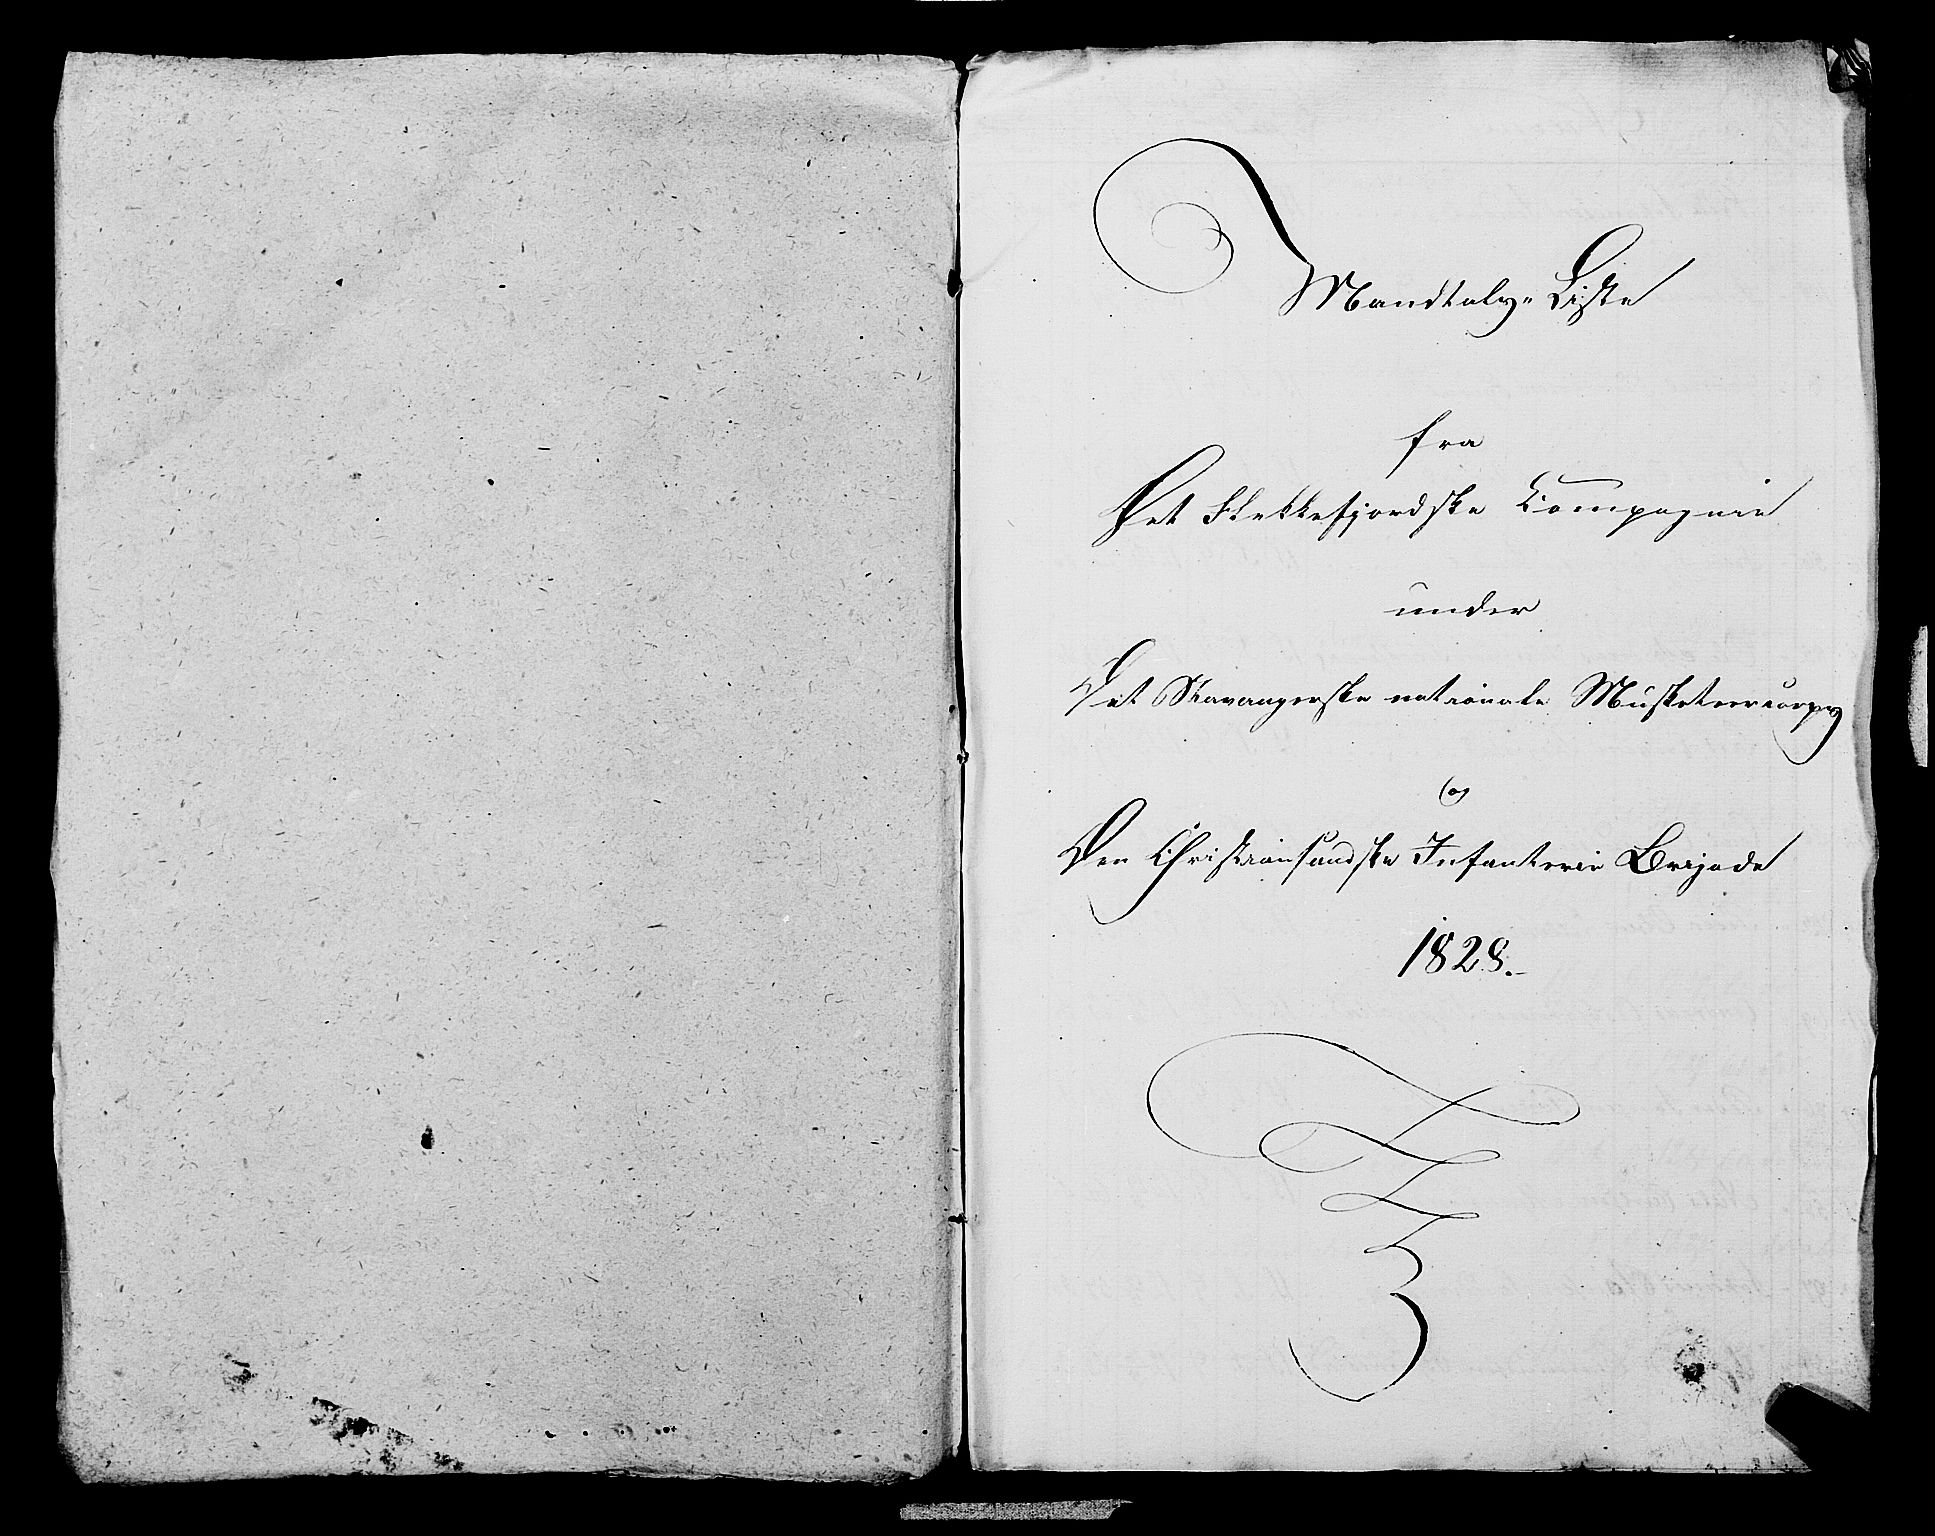 Mandtals-Liste
fra
Det Flekkefjordske Compagnie
under
Det Stavangerske nationale Musketeercorps
og
Den Christiansandske Infanterie Brigade
1828.